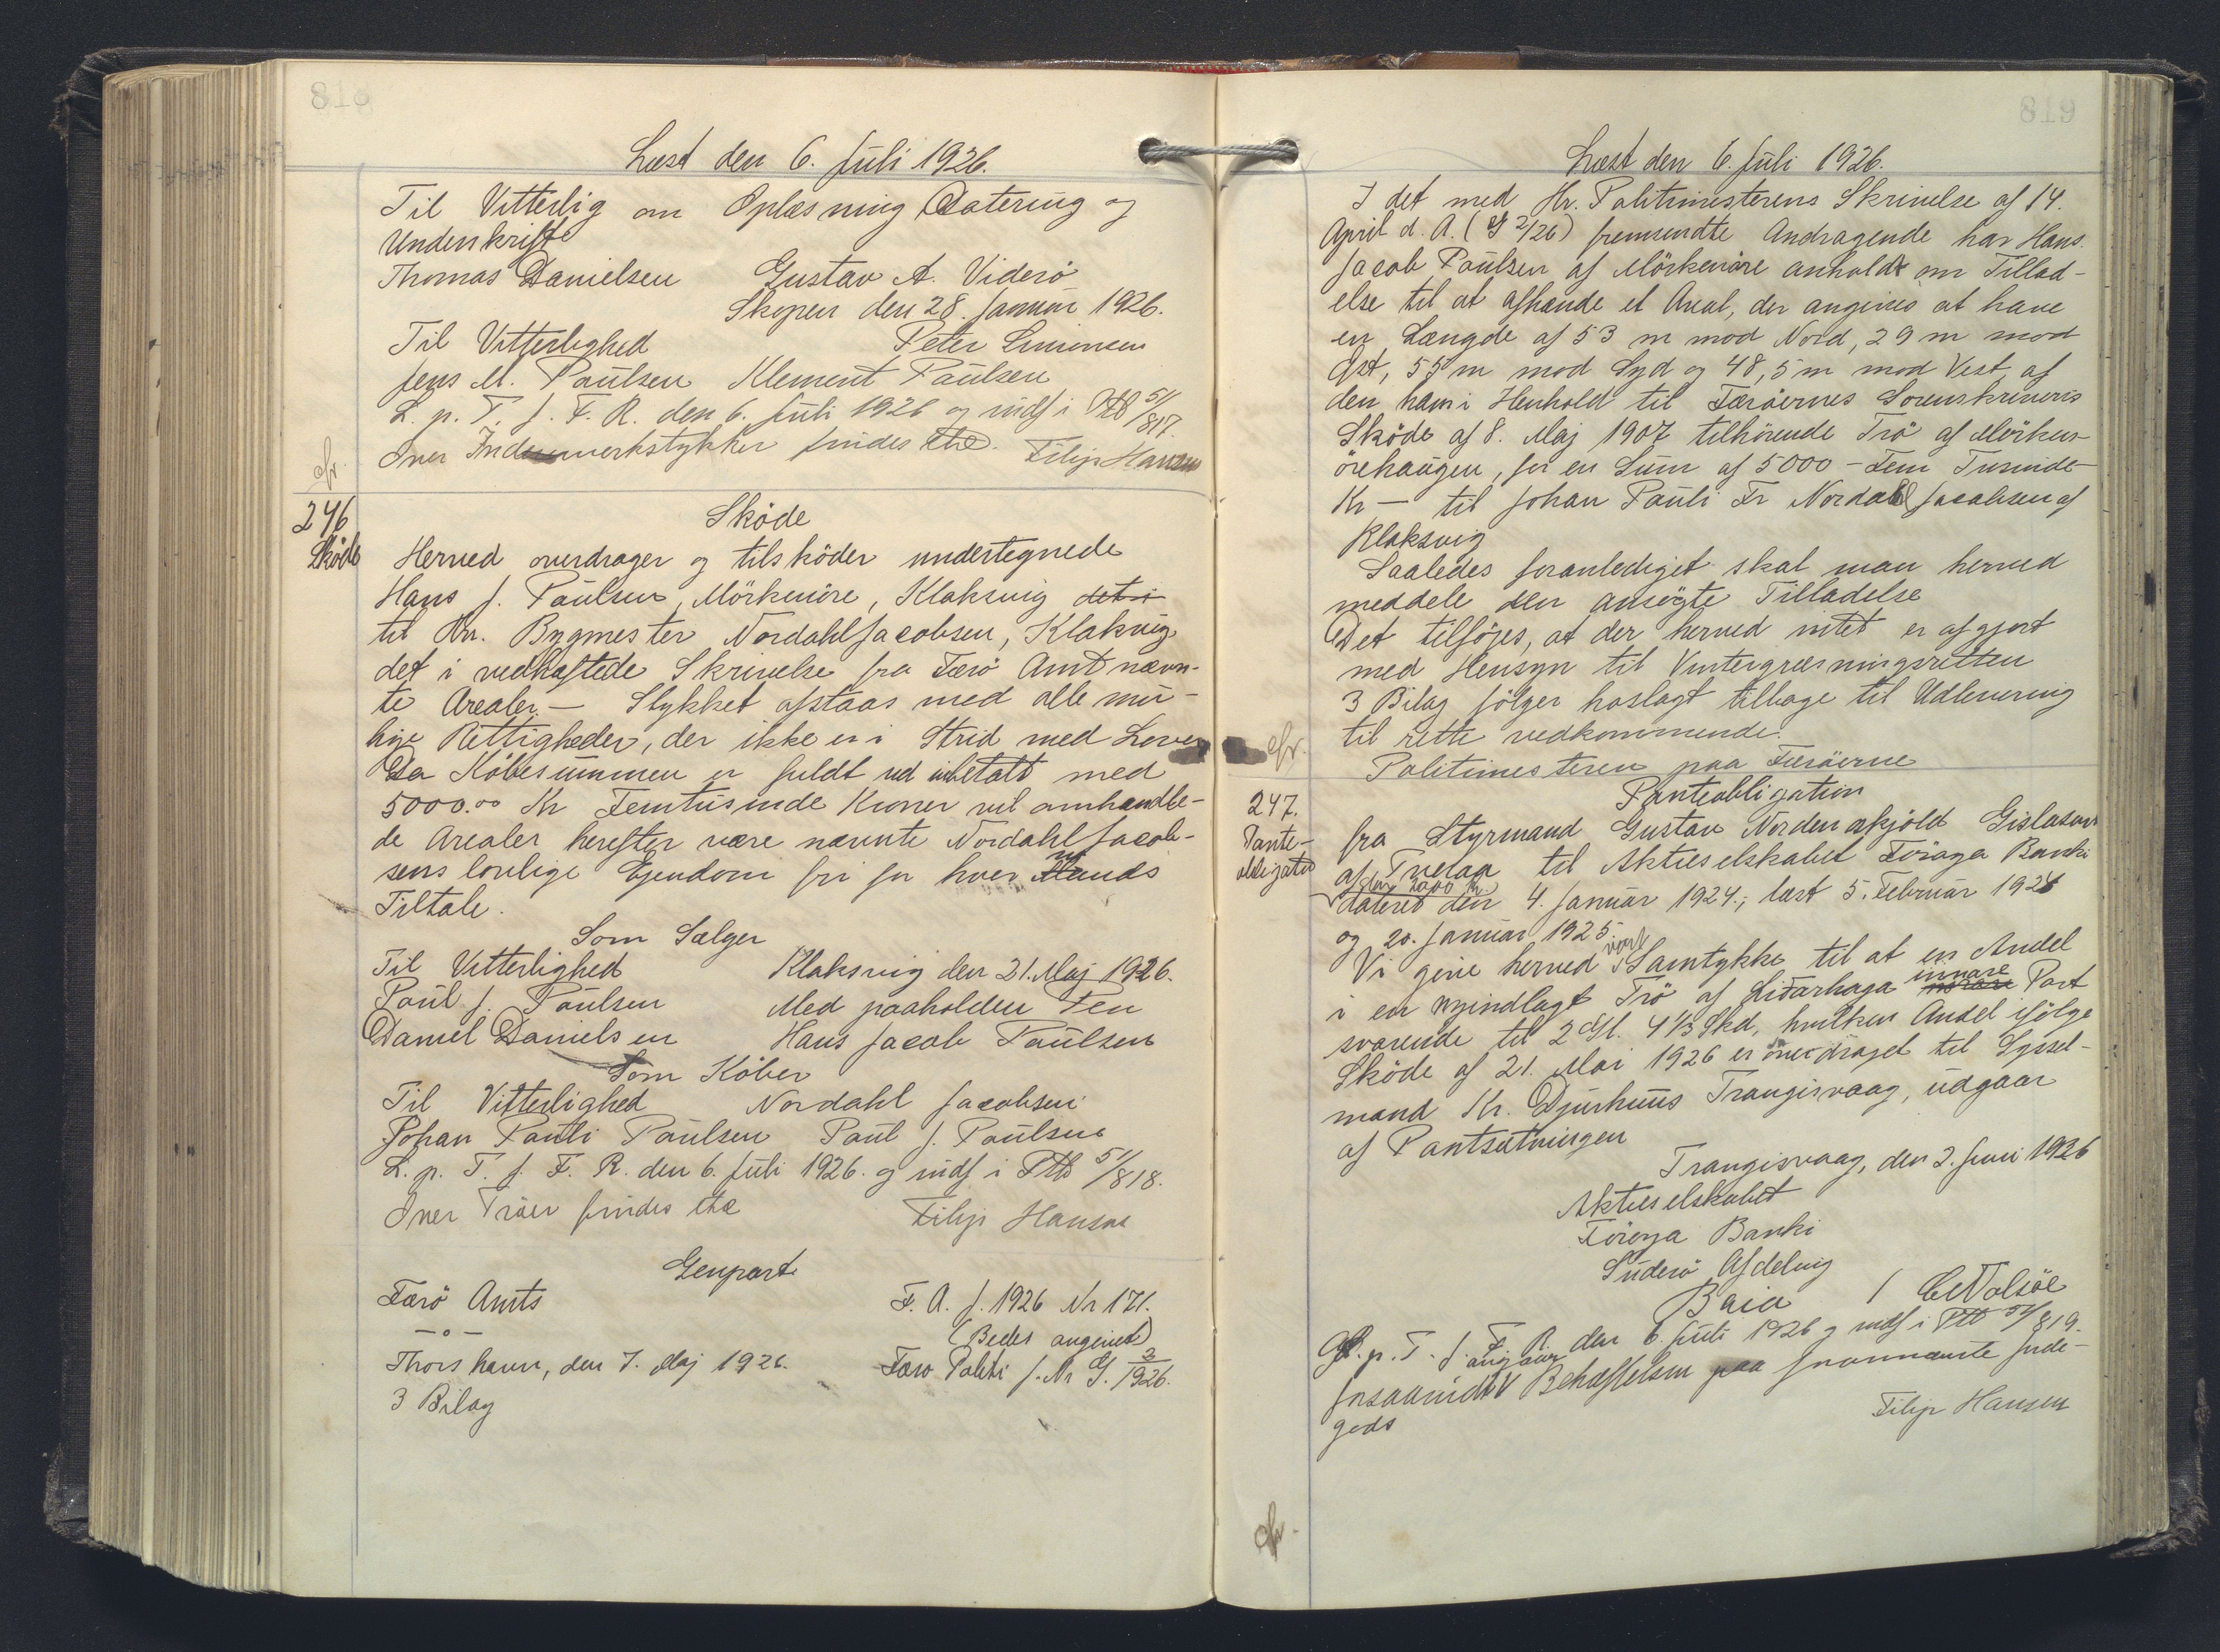 818
Læst den 6. Juli 1926.
Til Vitterlig om Oplæsning Datering og
Underskrift
Thomas Danielsen Gustav A. Viderö
Skopen den 28. Januar 1926.
Til Vitterlighed Peter Simonsen
Jens M. Poulsen Klement Poulsen
L. p. T. f. F. R. den 6. Juli 1926 og indf i Ptb 51/817.
Over Indmarkstykker findes Filip Hansen
cfr.
246
Sköde
Sköde
Herved overdrager og tilsköder undertegnede
Hans J. Poulsen, Mörkenöre, Klaksvig det i
til Hr. Bygmester Nordahl Jacobsen, Klaksvig
det i vedhæftede Skrivelse fra Færö Amt nævn-
te Arealer. — Stykket afstaas med alle mu-
lige Rettigheder, der ikke er i Strid med Loven
Da Köbesummen er fuldt ud inbetalt med
5000.00 Kr Femtusinde Kroner vil omhandle-
de Arealer herefter være nævnte Nordahl Jacob-
sens lovlige Ejendom fri for hver Mands
Tiltale.
Som Sælger
Til Vitterlighed Klaksvig den 21. Maj 1926.
Poul J. Poulsen Med paaholden Pen
Daniel Danielsen Hans Jacob Poulsen
Som Köber
Til Vitterlighed Nordahl Jacobsen
Johan Pauli Poulsen Poul J. Poulsen
L. p. T. f. F. R. den 6. Juli 1926. og indf i Ptb 51/818.
Over Tröer findes Filip Hansen
Genpart
Færö Amts F. A. J. 1926 Nr 171.
—o— (Bedes angivet)
Thorshavn, den 7. Maj 1926. Færo Politi J. Nr G. 2/1926.
3 Bilag
819
Læst den 6. Juli 1926.
I det med Hr. Politimesterens Skrivelse af 14.
April d. A. (G 2/26) fremsendte Andragende har Hans
Jacob Poulsen af Mörkenöre anholdt om Tillad-
else til at afhænde et Areal, der angives at have
en Længde af 53 m mod Nord, 29 m mod
Öst, 55 m mod Syd og 48,5 m mod Vest, af
den ham i Henhold til Færöernes Sorenskriveris
Sköde af 8. Maj 1907 tilhörende Trö af Mörken-
örehaugen, for en Sum af 5000 - Fem Tusinde
Kr — til Johan Pauli Fr Nordahl Jacobsen af
Klaksvig
Saaledes foranlediget skal man herved
meddele den ansögte Tilladelse
Det tilföjes, at der herved intet er afgjort
med Hensyn til Vintergræsningsretten
3 Bilag fölger hoslagt tilbage til Udlevering
til rette vedkommende.
Politimesteren paa Færöerne
cfr.
247.
Pante-
obligation
Panteobligation
fra Styrmand Gustav Nordenskjöld Gislason
af Tveraa til Aktieselskabet Föroya Banki
2000 Kr.
dateret den 4. Januar 1924.; læst 5. Februar 1924
og 20. Januar 1925.
Vi give herved vort Samtykke til at en Andel
i en nyindlagt Trö af Lidarhaga innare Part
svarende til 2 Gl. 4 1/3 Skd, hvilken Andel ifölge
Sköde af 21. Mai 1926 er overdraget til Syssel-
mand Kr. Djurhuus Trangisvaag, udgaar
af Pantsætningen
Trangisvaag, den 2. Juni 1926
Aktieselskabet
Föroya Banki
Suderö Afdeling
L. p. T. f. F. R. den 6. Juli 1926 og indf i Ptb 51/819.
angaar
forsaavidt Behæftelsen paa fornævnte Jorde-
gods
Filip Hansen
cfr.